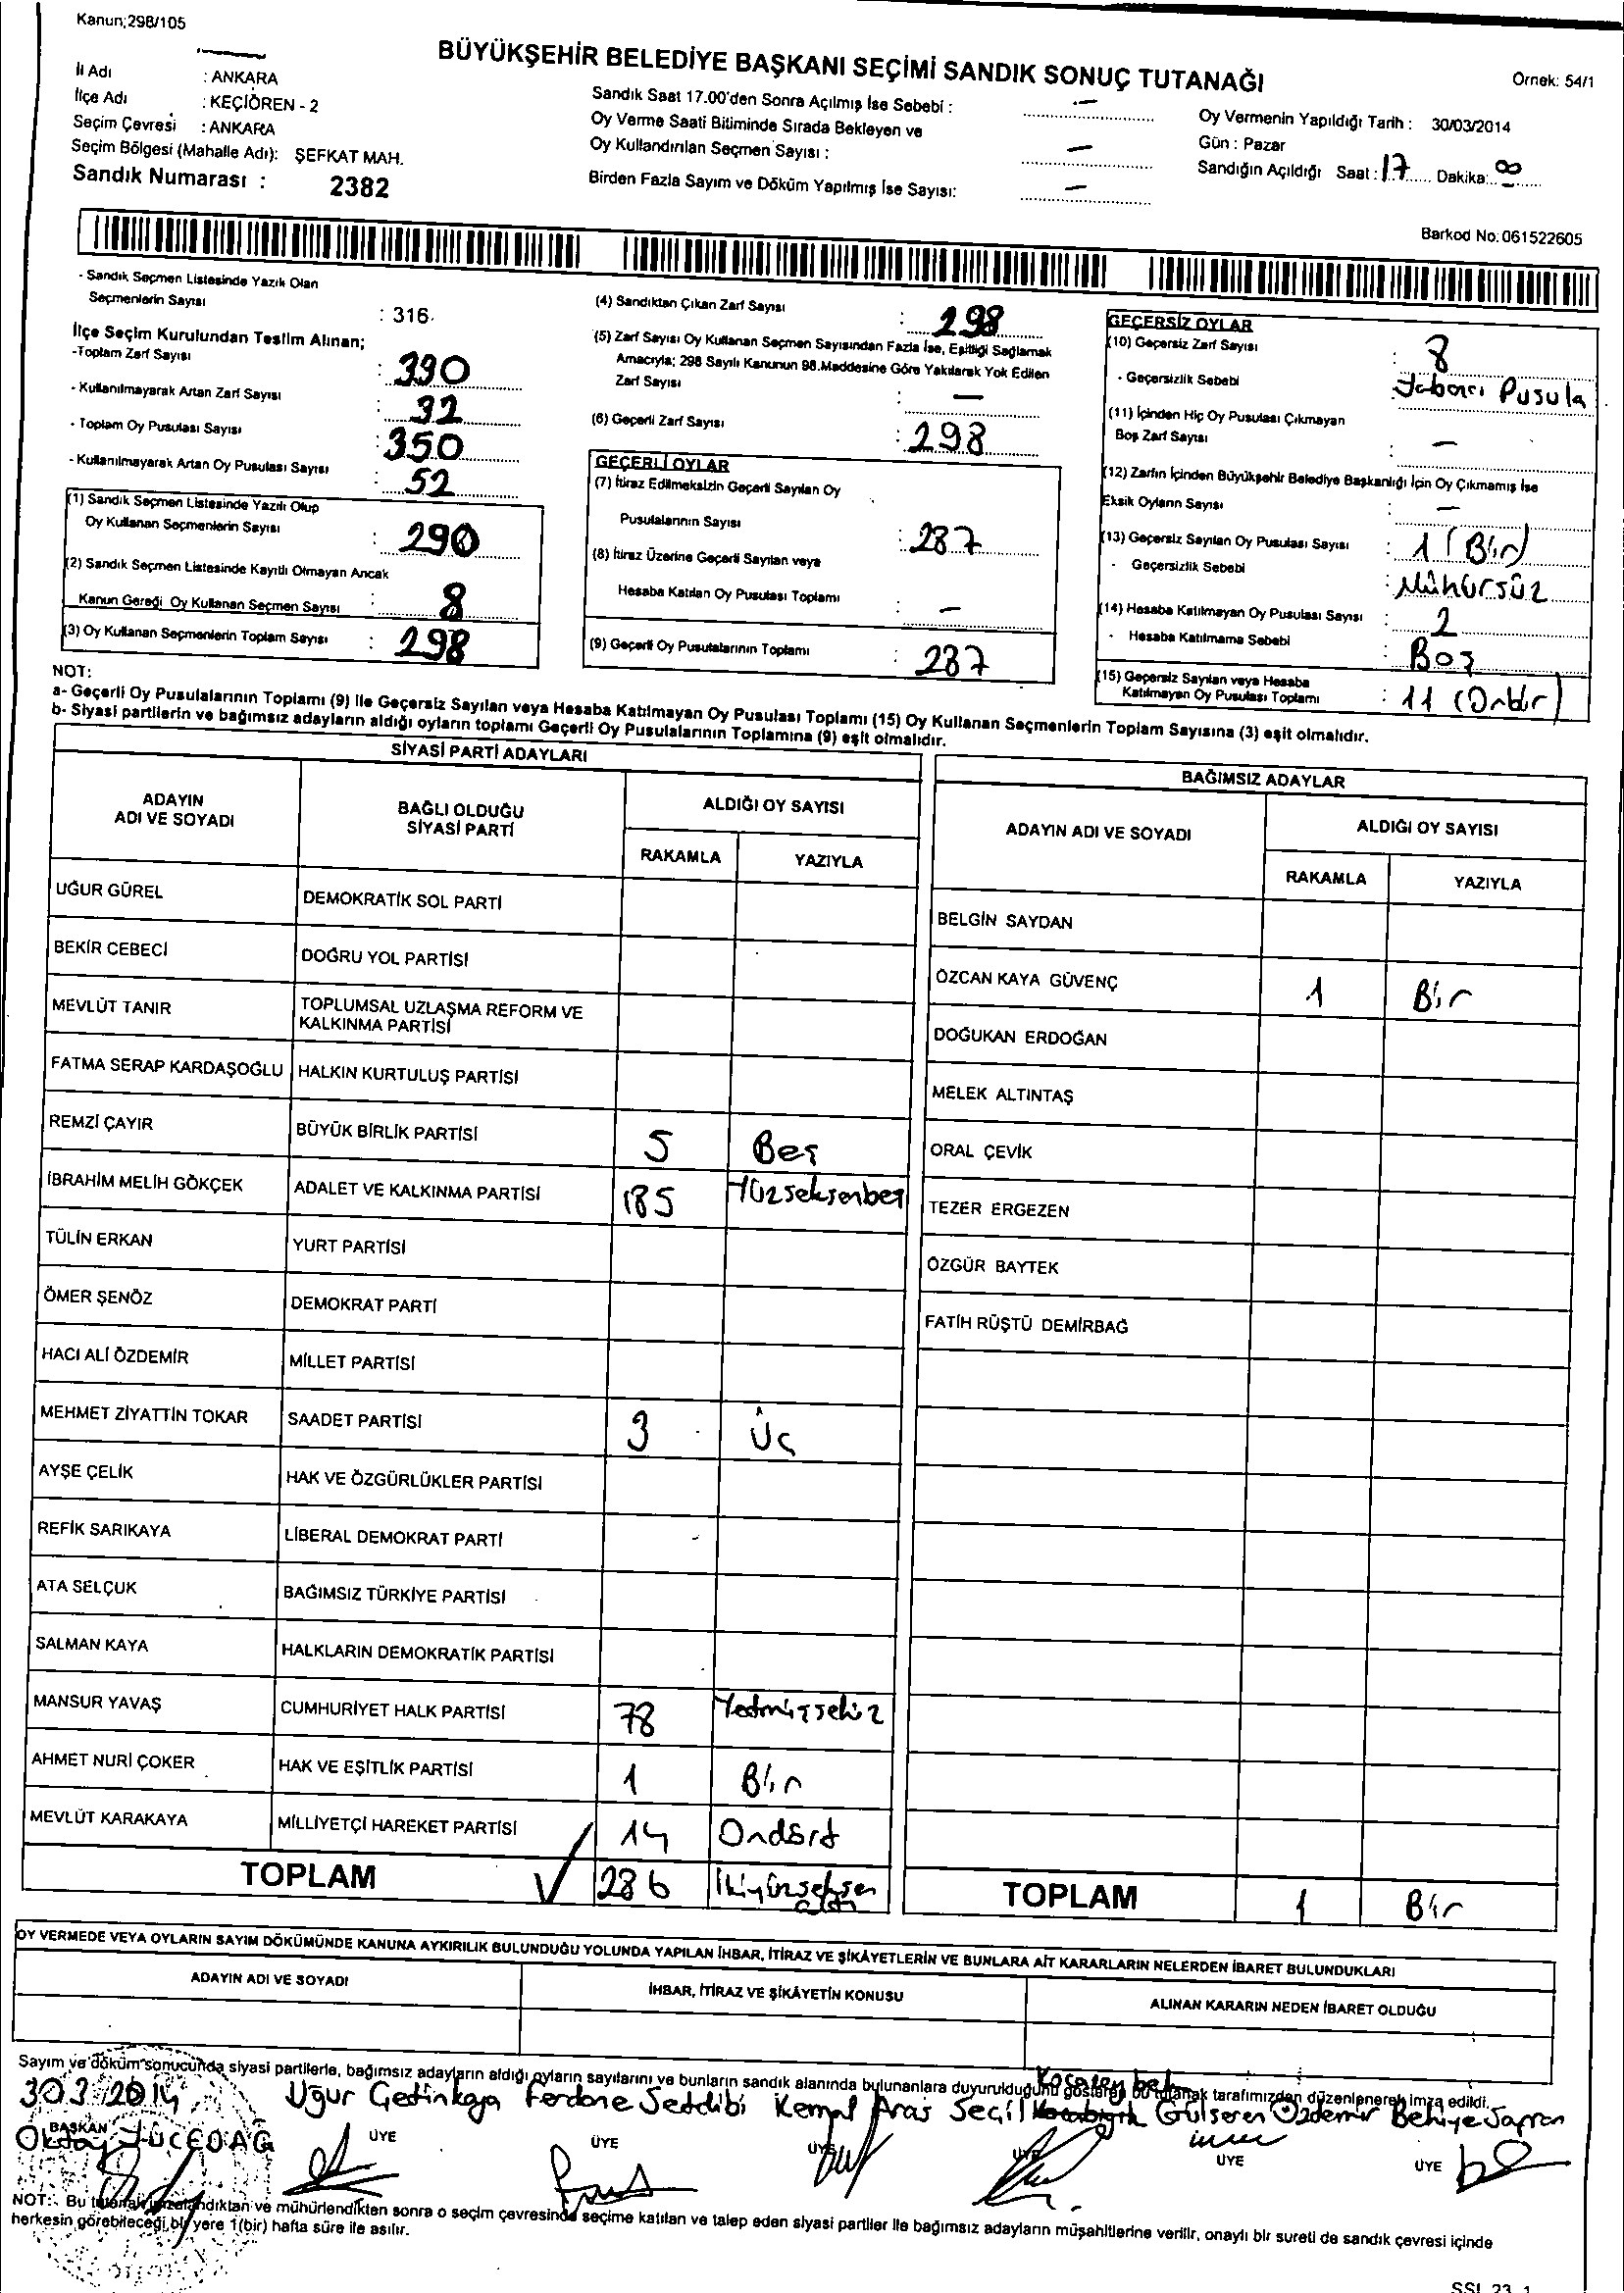 Kanun;298/105
BÜYÜKŞEHİR BELEDİYE BAŞKANI SEÇİMİ SANDIK SONUÇ TUTANAĞI
Örnek: 54/1
İl Adı : ANKARA
İlçe Adı : KEÇİÖREN - 2
Seçim Çevresi : ANKARA
Seçim Bölgesi (Mahalle Adı): ŞEFKAT MAH.
Sandık Numarası : 2382
Sandık Saat 17.00'den Sonra Açılmış İse Sebebi : —
Oy Verme Saati Bitiminde Sırada Bekleyen ve
Oy Kullandırılan Seçmen Sayısı : —
Birden Fazla Sayım ve Döküm Yapılmış İse Sayısı: —
Oy Vermenin Yapıldığı Tarih : 30/03/2014
Gün : Pazar
Sandığın Açıldığı Saat : 17 Dakika:
Barkod No: 061522605
- Sandık Seçmen Listesinde Yazılı Olan
Seçmenlerin Sayısı : 316
İlçe Seçim Kurulundan Teslim Alınan;
-Toplam Zarf Sayısı : 330
- Kullanılmayarak Artan Zarf Sayısı : 32
- Toplam Oy Pusulası Sayısı : 350
- Kullanılmayarak Artan Oy Pusulası Sayısı : 52
(1) Sandık Seçmen Listesinde Yazılı Olup
Oy Kullanan Seçmenlerin Sayısı : 290
(2) Sandık Seçmen Listesinde Kayıtlı Olmayan Ancak
Kanun Gereği Oy Kullanan Seçmen Sayısı : 8
(3) Oy Kullanan Seçmenlerin Toplam Sayısı : 298
(4) Sandıktan Çıkan Zarf Sayısı : 298
(5) Zarf Sayısı Oy Kullanan Seçmen Sayısından Fazla İse, Eşitliği Sağlamak
Amacıyla; 298 Sayılı Kanunun 98.Maddesine Göre Yakılarak Yok Edilen
Zarf Sayısı : —
(6) Geçerli Zarf Sayısı : 298
GEÇERLİ OYLAR
(7) İtiraz Edilmeksizin Geçerli Sayılan Oy
Pusulalarının Sayısı : 287
(8) İtiraz Üzerine Geçerli Sayılan veya
Hesaba Katılan Oy Pusulası Toplamı : —
(9) Geçerli Oy Pusulalarının Toplamı : 287
GEÇERSİZ OYLAR
(10) Geçersiz Zarf Sayısı : 8
- Geçersizlik Sebebi : Yabancı Pusula
(11) İçinden Hiç Oy Pusulası Çıkmayan
Boş Zarf Sayısı : —
(12) Zarfın İçinden Büyükşehir Belediye Başkanlığı İçin Oy Çıkmamış İse
Eksik Oyların Sayısı : —
(13) Geçersiz Sayılan Oy Pusulası Sayısı : 1 (Bir)
- Geçersizlik Sebebi : Mühürsüz
(14) Hesaba Katılmayan Oy Pusulası Sayısı : 2
- Hesaba Katılmama Sebebi : Boş
(15) Geçersiz Sayılan veya Hesaba
Katılmayan Oy Pusulası Toplamı : 11 (Onbir)
NOT:
a- Geçerli Oy Pusulalarının Toplamı (9) ile Geçersiz Sayılan veya Hesaba Katılmayan Oy Pusulası Toplamı (15) Oy Kullanan Seçmenlerin Toplam Sayısına (3) eşit olmalıdır.
b- Siyasi partilerin ve bağımsız adayların aldığı oyların toplamı Geçerli Oy Pusulalarının Toplamına (9) eşit olmalıdır.
SİYASİ PARTİ ADAYLARI
ADAYIN ADI VE SOYADI BAĞLI OLDUĞU SİYASİ PARTİ ALDIĞI OY SAYISI
RAKAMLA YAZIYLA
UĞUR GÜREL DEMOKRATİK SOL PARTİ
BEKİR CEBECİ DOĞRU YOL PARTİSİ
MEVLÜT TANIR TOPLUMSAL UZLAŞMA REFORM VE KALKINMA PARTİSİ
FATMA SERAP KARDAŞOĞLU HALKIN KURTULUŞ PARTİSİ
REMZİ ÇAYIR BÜYÜK BİRLİK PARTİSİ 5 Beş
İBRAHİM MELİH GÖKÇEK ADALET VE KALKINMA PARTİSİ 185 Yüzseksenbeş
TÜLİN ERKAN YURT PARTİSİ
ÖMER ŞENÖZ DEMOKRAT PARTİ
HACI ALİ ÖZDEMİR MİLLET PARTİSİ
MEHMET ZİYATTİN TOKAR SAADET PARTİSİ 3 Üç
AYŞE ÇELİK HAK VE ÖZGÜRLÜKLER PARTİSİ
REFİK SARIKAYA LİBERAL DEMOKRAT PARTİ
ATA SELÇUK BAĞIMSIZ TÜRKİYE PARTİSİ
SALMAN KAYA HALKLARIN DEMOKRATİK PARTİSİ
MANSUR YAVAŞ CUMHURİYET HALK PARTİSİ 78 Yetmişsekiz
AHMET NURİ ÇOKER HAK VE EŞİTLİK PARTİSİ 1 Bir
MEVLÜT KARAKAYA MİLLİYETÇİ HAREKET PARTİSİ 14 Ondört
TOPLAM 286 İkiyüzseksen altı
BAĞIMSIZ ADAYLAR
ADAYIN ADI VE SOYADI ALDIĞI OY SAYISI
RAKAMLA YAZIYLA
BELGİN SAYDAN
ÖZCAN KAYA GÜVENÇ 1 Bir
DOĞUKAN ERDOĞAN
MELEK ALTINTAŞ
ORAL ÇEVİK
TEZER ERGEZEN
ÖZGÜR BAYTEK
FATİH RÜŞTÜ DEMİRBAĞ
TOPLAM 1 Bir
OY VERMEDE VEYA OYLARIN SAYIM DÖKÜMÜNDE KANUNA AYKIRILIK BULUNDUĞU YOLUNDA YAPILAN İHBAR, İTİRAZ VE ŞİKÂYETLERİN VE BUNLARA AİT KARARLARIN NELERDEN İBARET BULUNDUKLARI
ADAYIN ADI VE SOYADI İHBAR, İTİRAZ VE ŞİKÂYETİN KONUSU ALINAN KARARIN NEDEN İBARET OLDUĞU
Sayım ve döküm sonucunda siyasi partilerle, bağımsız adayların aldığı oyların sayılarını ve bunların sandık alanında bulunanlara duyurulduğunu gösteren bu tutanak tarafımızdan düzenlenerek imza edildi.
30.3.2014 Uğur Çetinkaya Ferdane Seddibi Kemal Aras Seçil Gülseren Özdemir Behiye
BAŞKAN ÜYE ÜYE ÜYE ÜYE ÜYE ÜYE
Oktay YÜCEDAĞ
NOT: Bu tutanak imzalandıktan ve mühürlendikten sonra o seçim çevresinde seçime katılan ve talep eden siyasi partiler ile bağımsız adayların müşahitlerine verilir, onaylı bir sureti de sandık çevresi içinde
herkesin görebileceği bir yere 1(bir) hafta süre ile asılır.